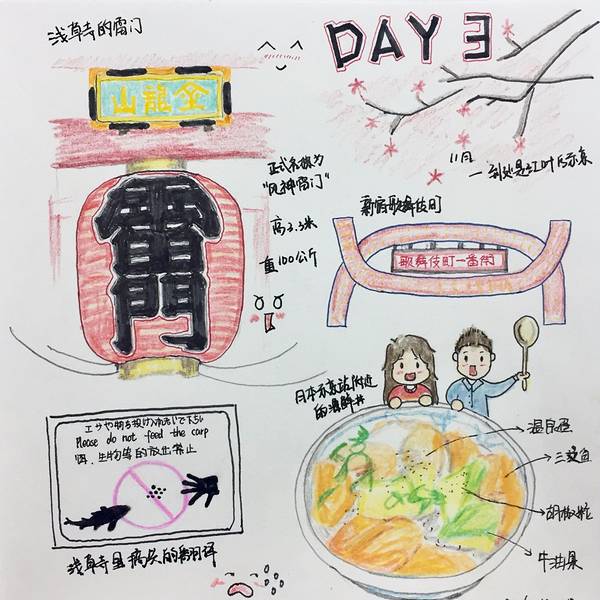 浅草寺的雷门
DAY 3
山龍金
雷門
正式名称为
"风神雷门"
高3.3米
重100公斤
11月
一到处是红叶的东京
新宿歌舞伎町
歌舞伎町一番街
日本东京站附近
的海鲜丼
温泉蛋
三文鱼
胡椒粒
牛油果
Please do not feed the carp
餌、生物等的放出禁止
浅草寺里搞笑的翻译